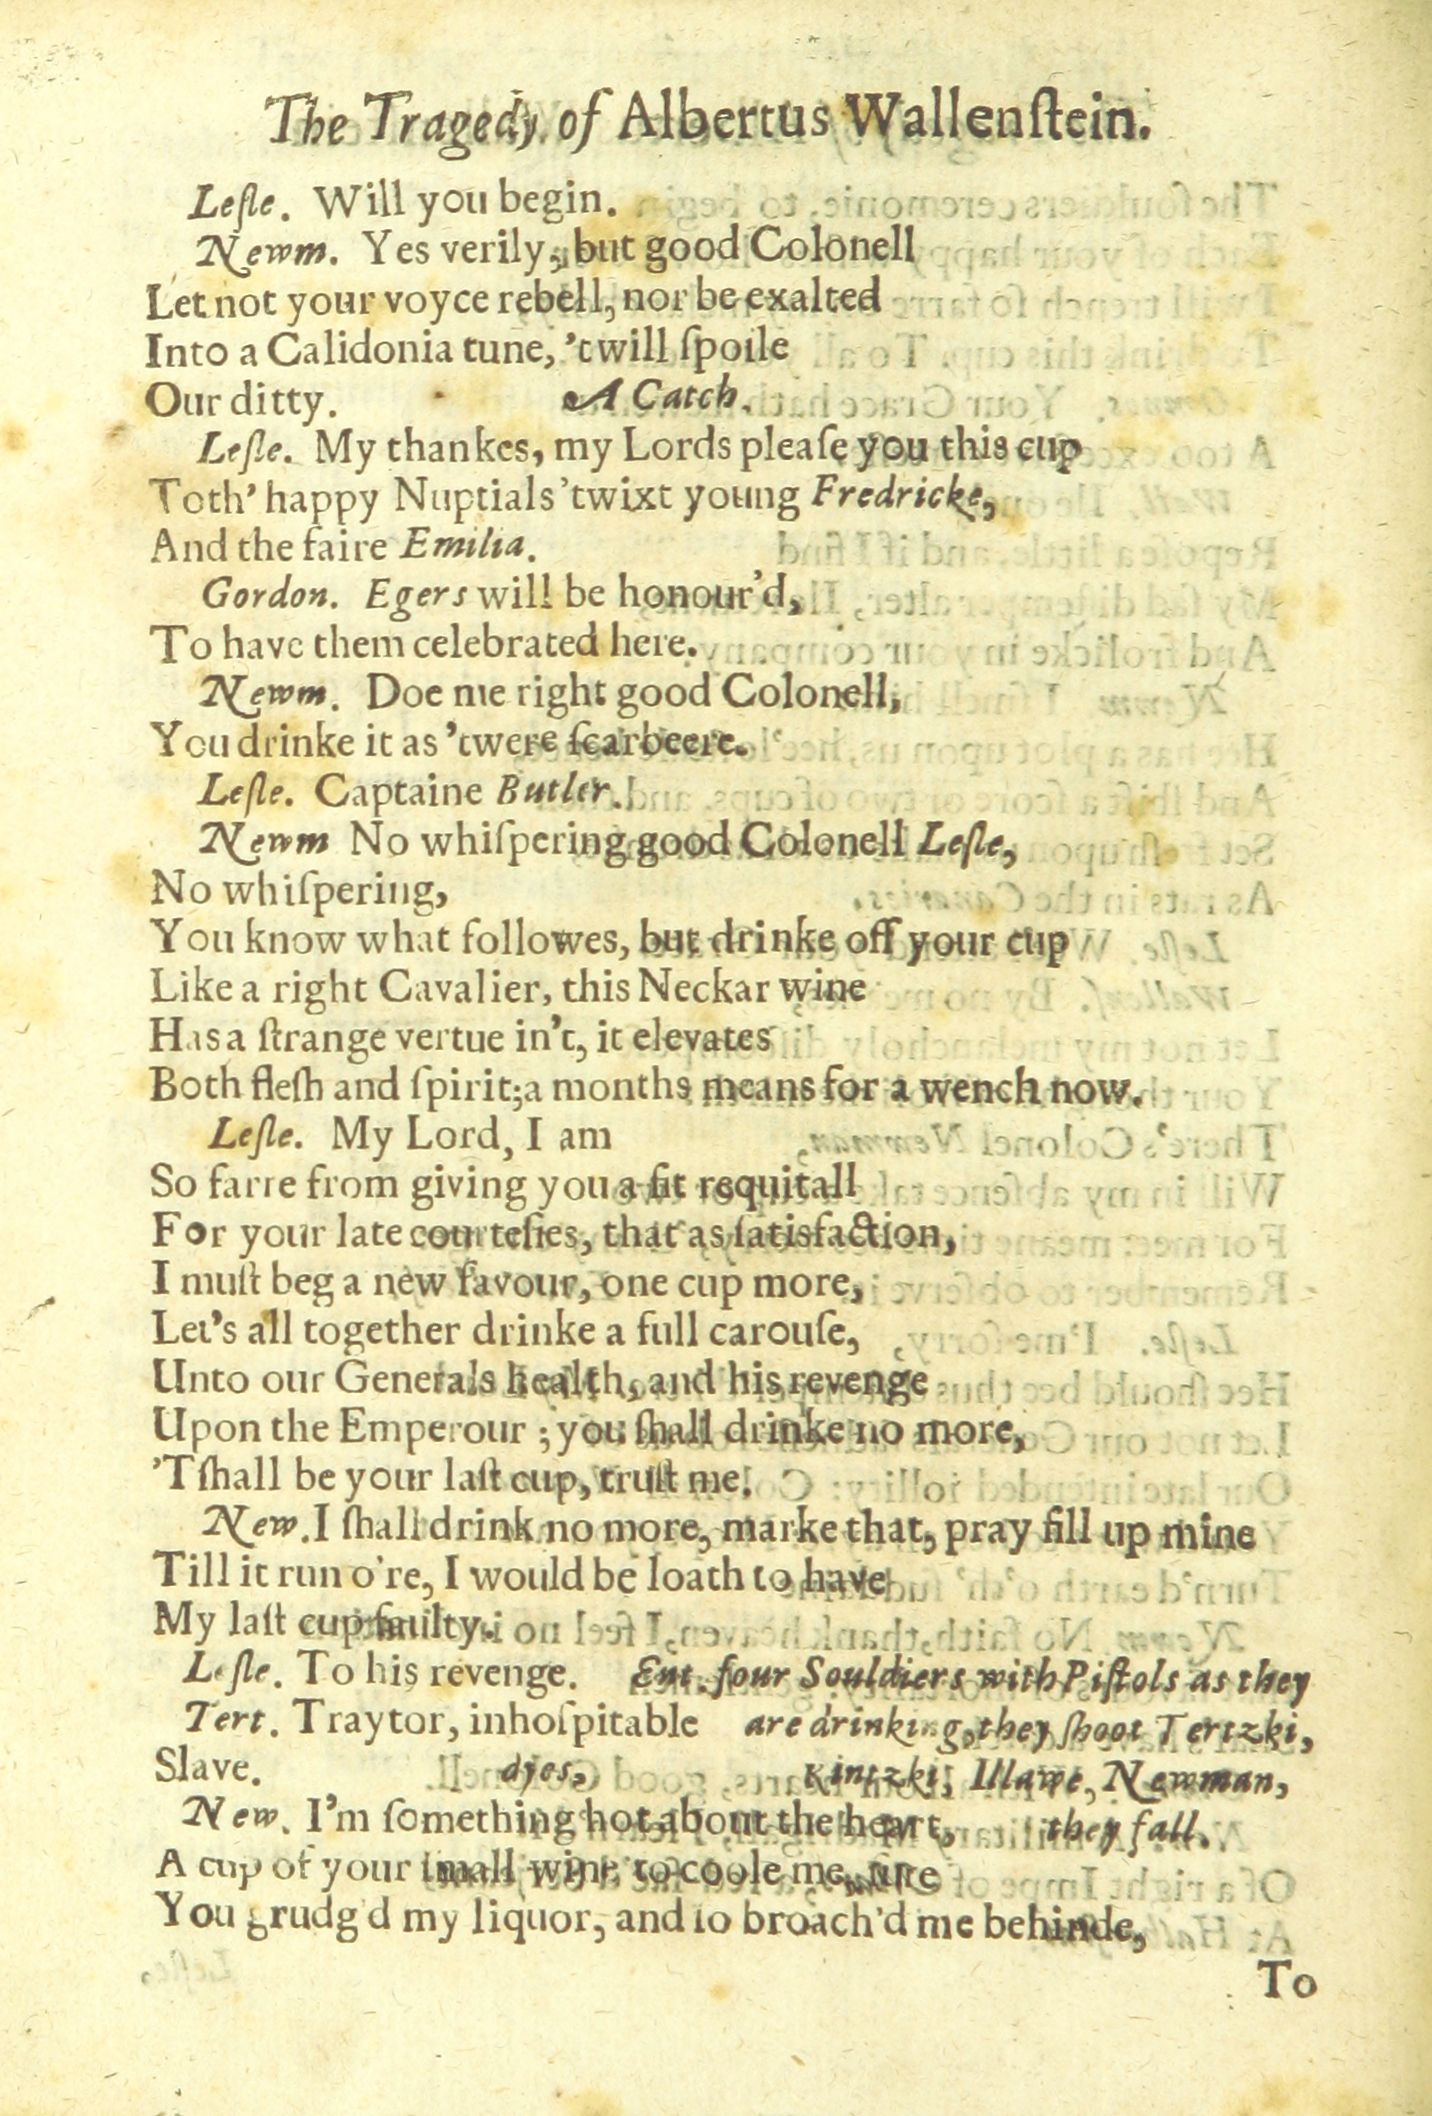 The Tragedy of Albertus Wallenſtein.
Leſle. Will you begin.
Newm. Yes verily, but good Colonell
Let not your voyce rebell, nor be exalted
Into a Calidonia tune, 'twill ſpoile
Our ditty. A Catch.
Leſle. My thankes, my Lords pleaſe you this cup
Toth' happy Nuptials 'twixt young Fredricke,
And the faire Emilia.
Gordon. Egers will be honour'd,
To have them celebrated here.
Newm. Doe me right good Colonell,
You drinke it as 'twere ſcarbeere.
Leſle. Captaine Butler.
Newm No whiſpering good Colonell Leſle,
No whiſpering,
You know what followes, but drinke off your cup
Like a right Cavalier, this Neckar wine
Has a ſtrange vertue in't, it elevates
Both fleſh and ſpirit; a months means for a wench now.
Leſle. My Lord, I am
So farre from giving you a fit requitall
For your late courteſies, that as ſatisfaction,
I muſt beg a new favour, one cup more,
Let's all together drinke a full carouſe,
Unto our Generals health, and his revenge
Upon the Emperour; you ſhall drinke no more,
'Tſhall be your laſt cup, truſt me.
New. I ſhall drink no more, marke that, pray fill up mine
Till it run o're, I would be loath to have
My laſt cup faulty.
Leſle. To his revenge. Ent. four Souldiers with Piſtols as they
Tert. Traytor, inhoſpitable are drinking, they ſhoot Tertzki,
Slave. dyes. Kintzki, Illawe, Newman,
New. I'm ſomething hot about the heart, they fall.
A cup of your ſmall wine to coole me, ſure
You grudg'd my liquor, and ſo broach'd me behinde,
To